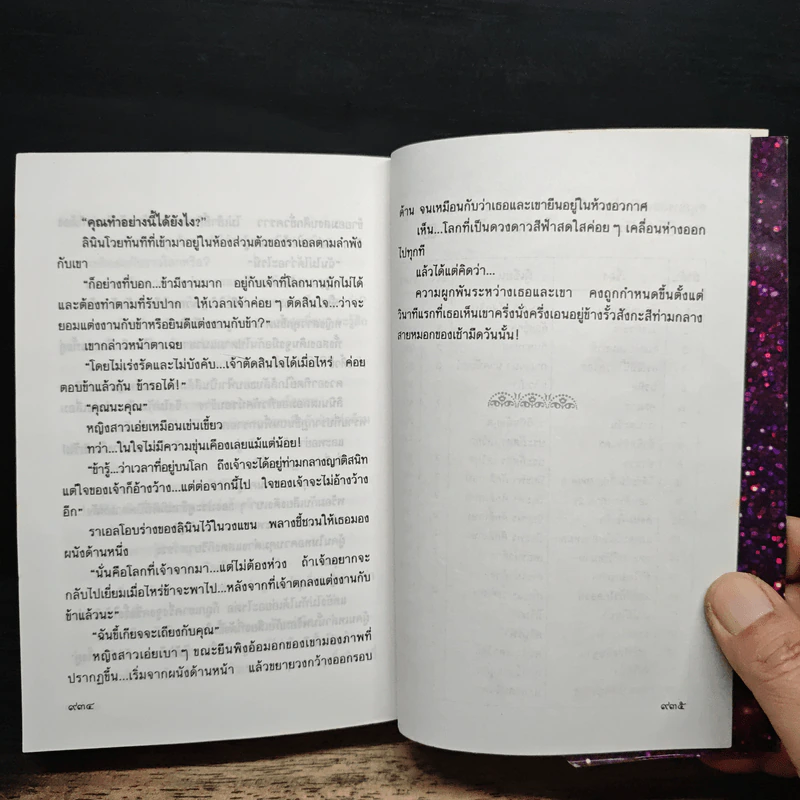 “คุณทำอย่างนี้ได้ยังไง?”
ลินินโวยทันทีที่เข้ามาอยู่ในห้องส่วนตัวของราเอลตามลำพัง
กับเขา
“ก็อย่างที่บอก...ข้ามีงานมาก อยู่กับเจ้าที่โลกนานนักไม่ได้
และต้องทำตามที่รับปาก ให้เวลาเจ้าค่อย ๆ ตัดสินใจ...ว่าจะ
ยอมแต่งงานกับข้าหรือยินดีแต่งงานกับข้า?”
เขากล่าวหน้าตาเฉย
“โดยไม่เร่งรัดและไม่บังคับ...เจ้าตัดสินใจได้เมื่อไหร่ ค่อย
ตอบข้าแล้วกัน ข้ารอได้!”
“คุณนะคุณ”
หญิงสาวเอ่ยเหมือนเข่นเขี้ยว
ทว่า...ในใจไม่มีความขุ่นเคืองเลยแม้แต่น้อย!
“ข้ารู้...ว่าเวลาที่อยู่บนโลก ถึงเจ้าจะได้อยู่ท่ามกลางญาติสนิท
แต่ใจของเจ้าก็อ้างว้าง...แต่ต่อจากนี้ไป ใจของเจ้าจะไม่อ้างว้าง
อีก”
ราเอลโอบร่างของลินินไว้ในวงแขน พลางชี้ชวนให้เธอมอง
ผนังด้านหนึ่ง
“นั่นคือโลกที่เจ้าจากมา...แต่ไม่ต้องห่วง ถ้าเจ้าอยากจะ
กลับไปเยี่ยมเมื่อไหร่ข้าจะพาไป...หลังจากที่เจ้าตกลงแต่งงานกับ
ข้าแล้วนะ”
“ฉันขี้เกียจจะเถียงกับคุณ”
หญิงสาวเอ่ยเบา ๆ ขณะยืนพิงอ้อมอกของเขามองภาพที่
ปรากฏขึ้น...เริ่มจากผนังด้านหน้า แล้วขยายวงกว้างออกรอบ
๙๓๔
ด้าน จนเหมือนกับว่าเธอและเขายืนอยู่ในห้วงอวกาศ
เห็น...โลกที่เป็นดวงดาวสีฟ้าสดใสค่อย ๆ เคลื่อนห่างออก
ไปทุกที
แล้วได้แต่คิดว่า...
ความผูกพันระหว่างเธอและเขา คงถูกกำหนดขึ้นตั้งแต่
วินาทีแรกที่เธอเห็นเขาครึ่งนั่งครึ่งเอนอยู่ข้างรั้วสังกะสีท่ามกลาง
สายหมอกของเช้ามืดวันนั้น!
๙๓๕